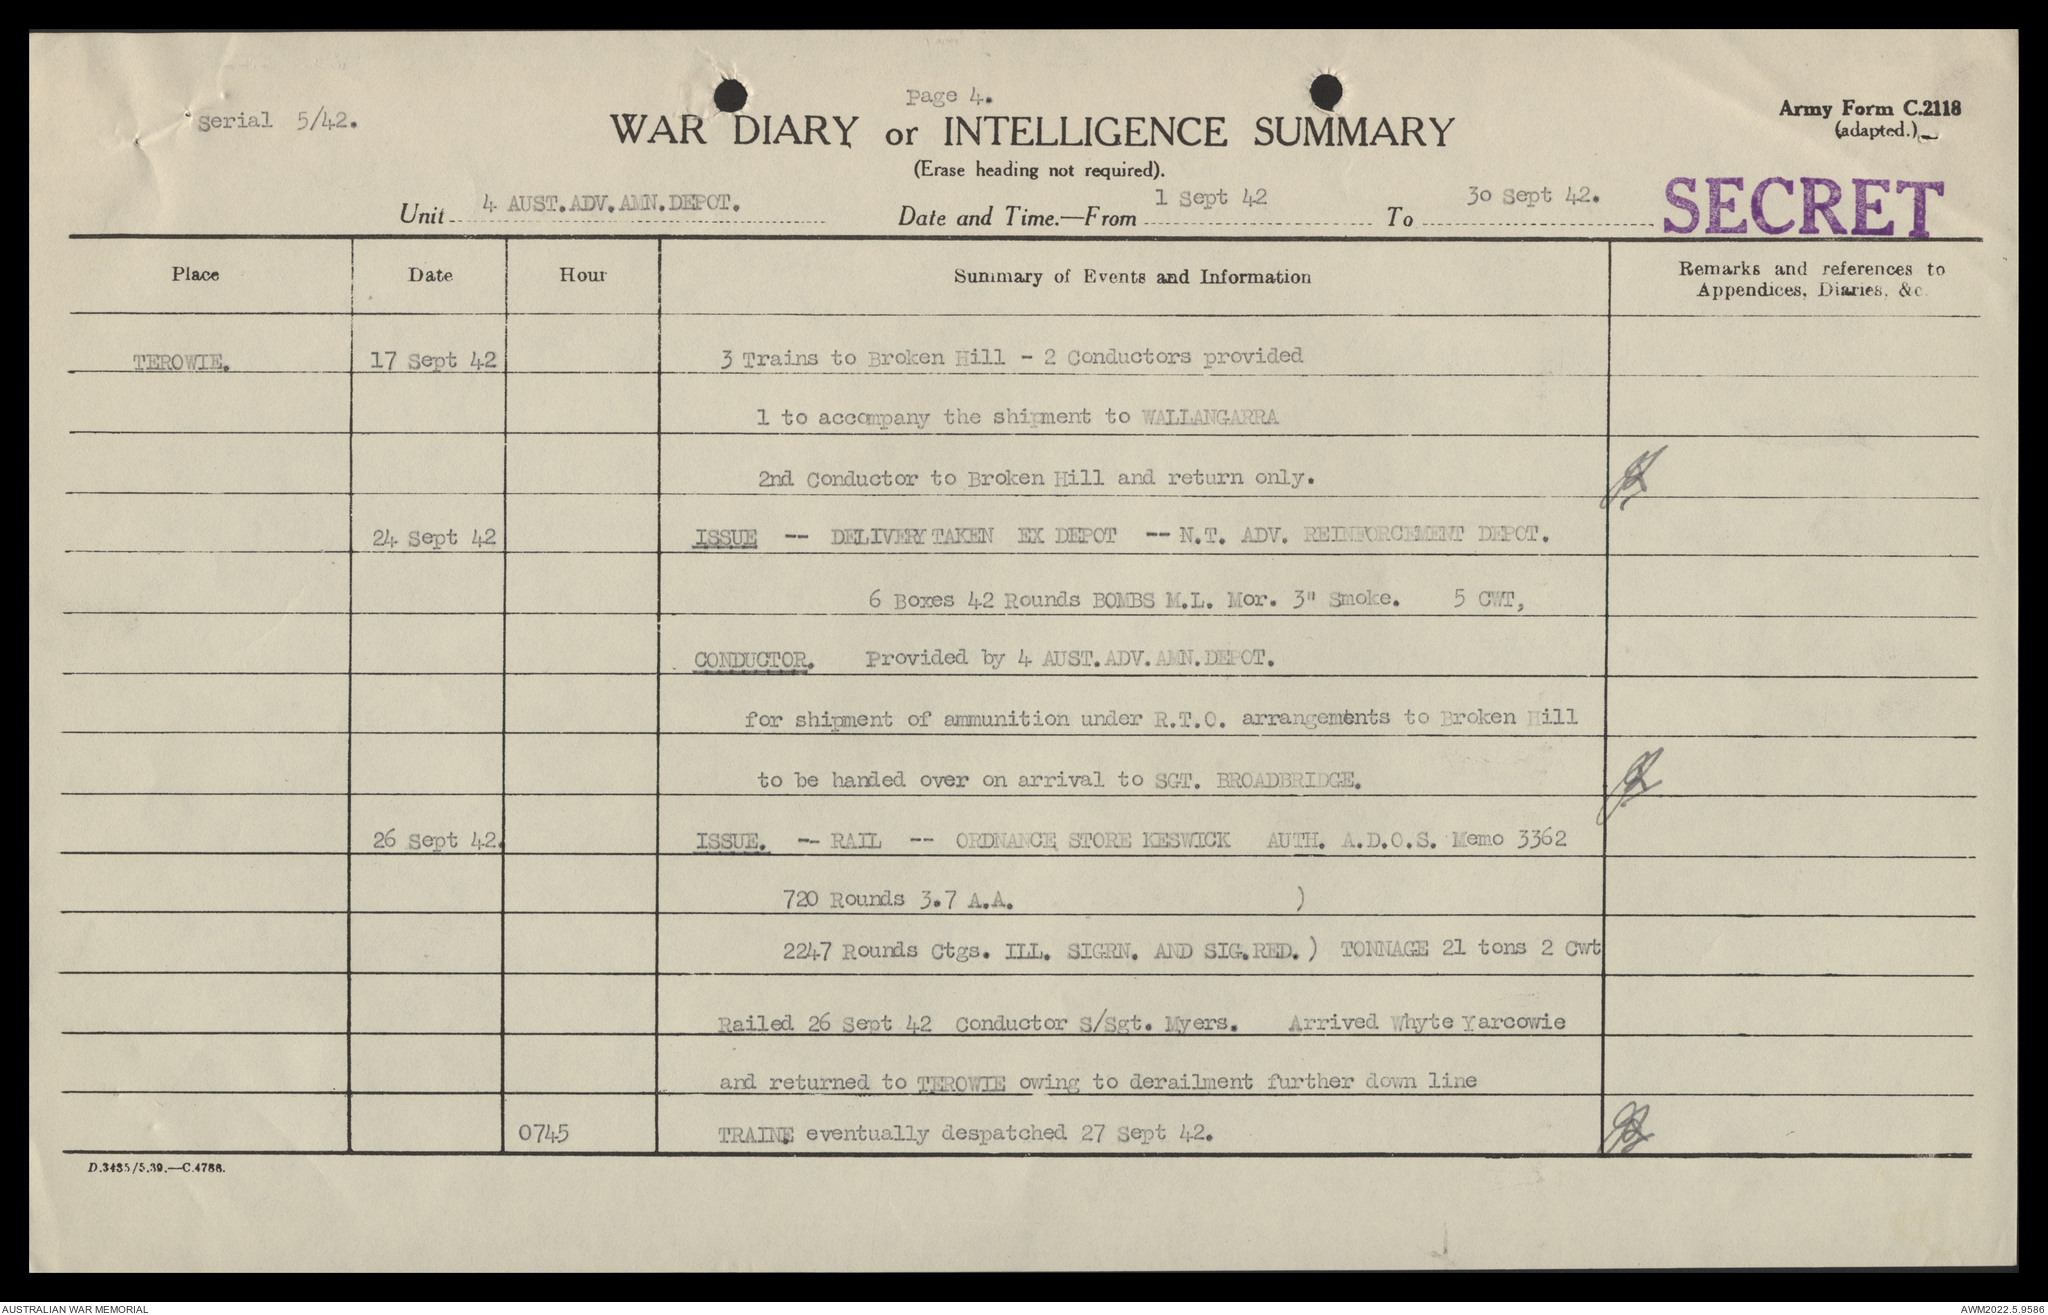 Page 4.
Serial 5/42.
Army Form C.2118
(adapted.)
WAR DIARY or INTELLIGENCE SUMMARY
(Erase heading not required).
SECRET
Unit 4 AUST.ADV.AMN.DEPOT. Date and Time.—From 1 Sept 42 To 30 Sept 42.
Place Date Hour Summary of Events and Information Remarks and references to
Appendices, Diaries, &c.
TEROWIE. 17 Sept 42 3 Trains to Broken Hill - 2 Conductors provided
1 to accompany the shipment to WALLANGARRA
2nd Conductor to Broken Hill and return only.
24 Sept 42 ISSUE -- DELIVERY TAKEN EX DEPOT -- N.T. ADV. REINFORCEMENT DEPOT.
6 Boxes 42 Rounds BOMBS M.L. Mor. 3" Smoke. 5 CWT,
CONDUCTOR. Provided by 4 AUST.ADV.AMN.DEPOT.
for shipment of ammunition under R.T.O. arrangemtnts to Broken Hill
to be handed over on arrival to SGT. BROADBRIDGE.
26 Sept 42. ISSUE. -- RAIL -- ORDNANCE STORE KESWICK AUTH. A.D.O.S. Memo 3362
720 Rounds 3.7 A.A. )
2247 Rounds Ctgs. ILL. SIGRN. AND SIG.RED. ) TONNAGE 21 tons 2 Cwt
Railed 26 Sept 42 Conductor S/Sgt. Myers. Arrived Whyte Yarcowie
and returned to TEROWIE owing to derailment further down line
0745 TRAINE eventually despatched 27 Sept 42.
D.3435/5.39.—C.4786.
AUSTRALIAN WAR MEMORIAL
AWM2022.5.9586